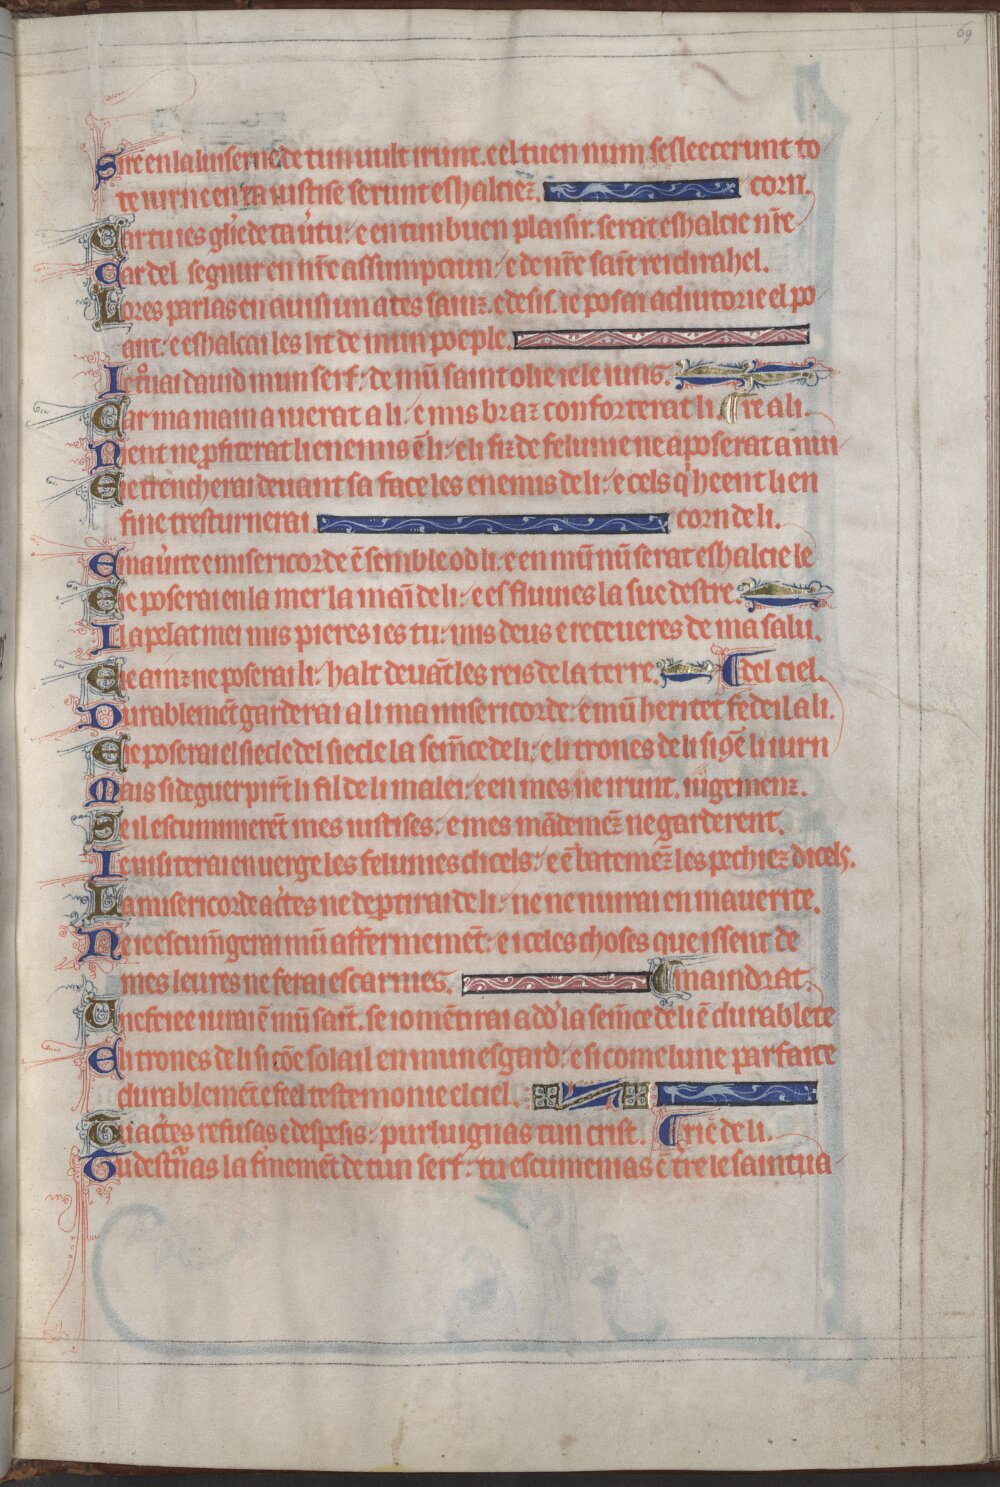 69
Sire en la luiserne de tun uult irunt. e el tuen num sesleecerunt to
te iurn e en ta iustise serunt eshalciez. corn.
Car tu ies gl'ie de ta u'tu : e en tun buen plaisir. serat eshalcie nr̄e
Car del segnur en nr̄e assumpciun : e de nr̄e saint rei dirahel.
Lores parlas en auisiun a tes sainz. e desis. ie posai adiutorie el po
ant : e eshalcai les lit de mun poeple.
Ie truai dauid mun serf : de mū saint olie ie le uins.
Car ma main aiuerat a li : e mis braz conforterat li. Cre a li.
Nient ne ꝓfiterat li enemis ē li : e li fiz de felunie ne aposerat a nui
E ie trencherai deuant sa face les enemis de li : e cels q' heent li en
fuie tresturnerai. corn de li.
E ma u'ite e misericorde ēsemble od li : e en mū nū serat eshalcie le
E ie poserai en la mer la maī de li : e es fluuies la sue destre.
Il apelat mei mis pieres ies tu : mis deus e receueres de ma salu.
E ie ainz ne poserai li : halt deuāt les reis de la terre. C del ciel.
Durablemēt garderai a li ma misericorde : e mū heritet fedeil a li.
E ie poserai el siecle del siecle la sem̄ce de li : e li trones de li si 9e li iurn
Mais si deguerpirūt li fil de li ma lei : e en mes ne irunt. iugemenz.
Se il escummierēt mes iustises : e mes mādemēz ne garderent.
Ie uisiterai en uerge les felunies dicels : e ē batemēz les pechiez dicels.
La misericorde actes ne deꝑtirai de li : ne ne nuirai en ma uerite.
Ne ie escum̄gerai mū affermemēt : e iceles choses que issent de
mes leures ne ferai escarnies. C maindrat.
Une feiee iurai ē mū saīt. se io mētirai a dd' la sem̄ce de li ē durablete
E li trones de li si cōe solail en mun esgard : e si come lune parfaite
durablemēt e feel testemonie el ciel.
Tu actes refusas e despesis : purluignas tun crist. C rie de li.
Tu destrn̄as la fm̄emēt de tun serf : tu escumenias ē tre le saintua